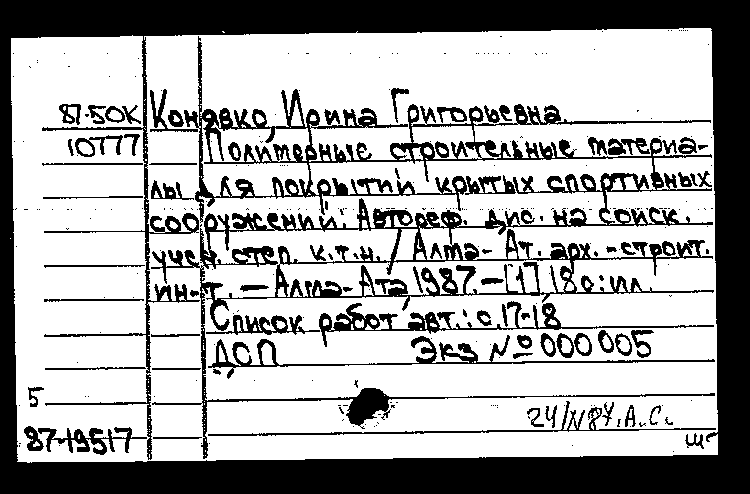 87-50К Конявко, Ирина Григорьевна.
10777 Полимерные строительные материа-
лы для покрытий крытых спортивных
сооружений: Автореф. дис. на соиск.
учен. степ. к.т.н. / Алма-Ат. арх.-строит.
ин-т. — Алма-Ата, 1987. — [1], 18 с.: ил.
Список работ авт.: с. 17-18
ДСП Экз № 000005
5
24/IV 87. А.С.
87-19517
щг